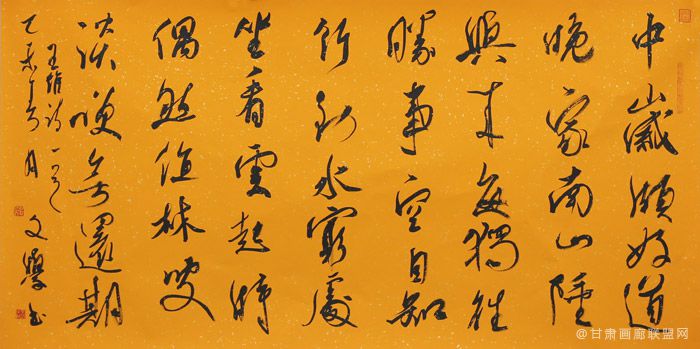 中歲頗好道
晚家南山陲
興來每獨往
勝事空自知
行到水窮處
坐看雲起時
偶然值林叟
談咲無還期
王維詩一首
乙未
月
文學書
@甘肃画廊联盟网